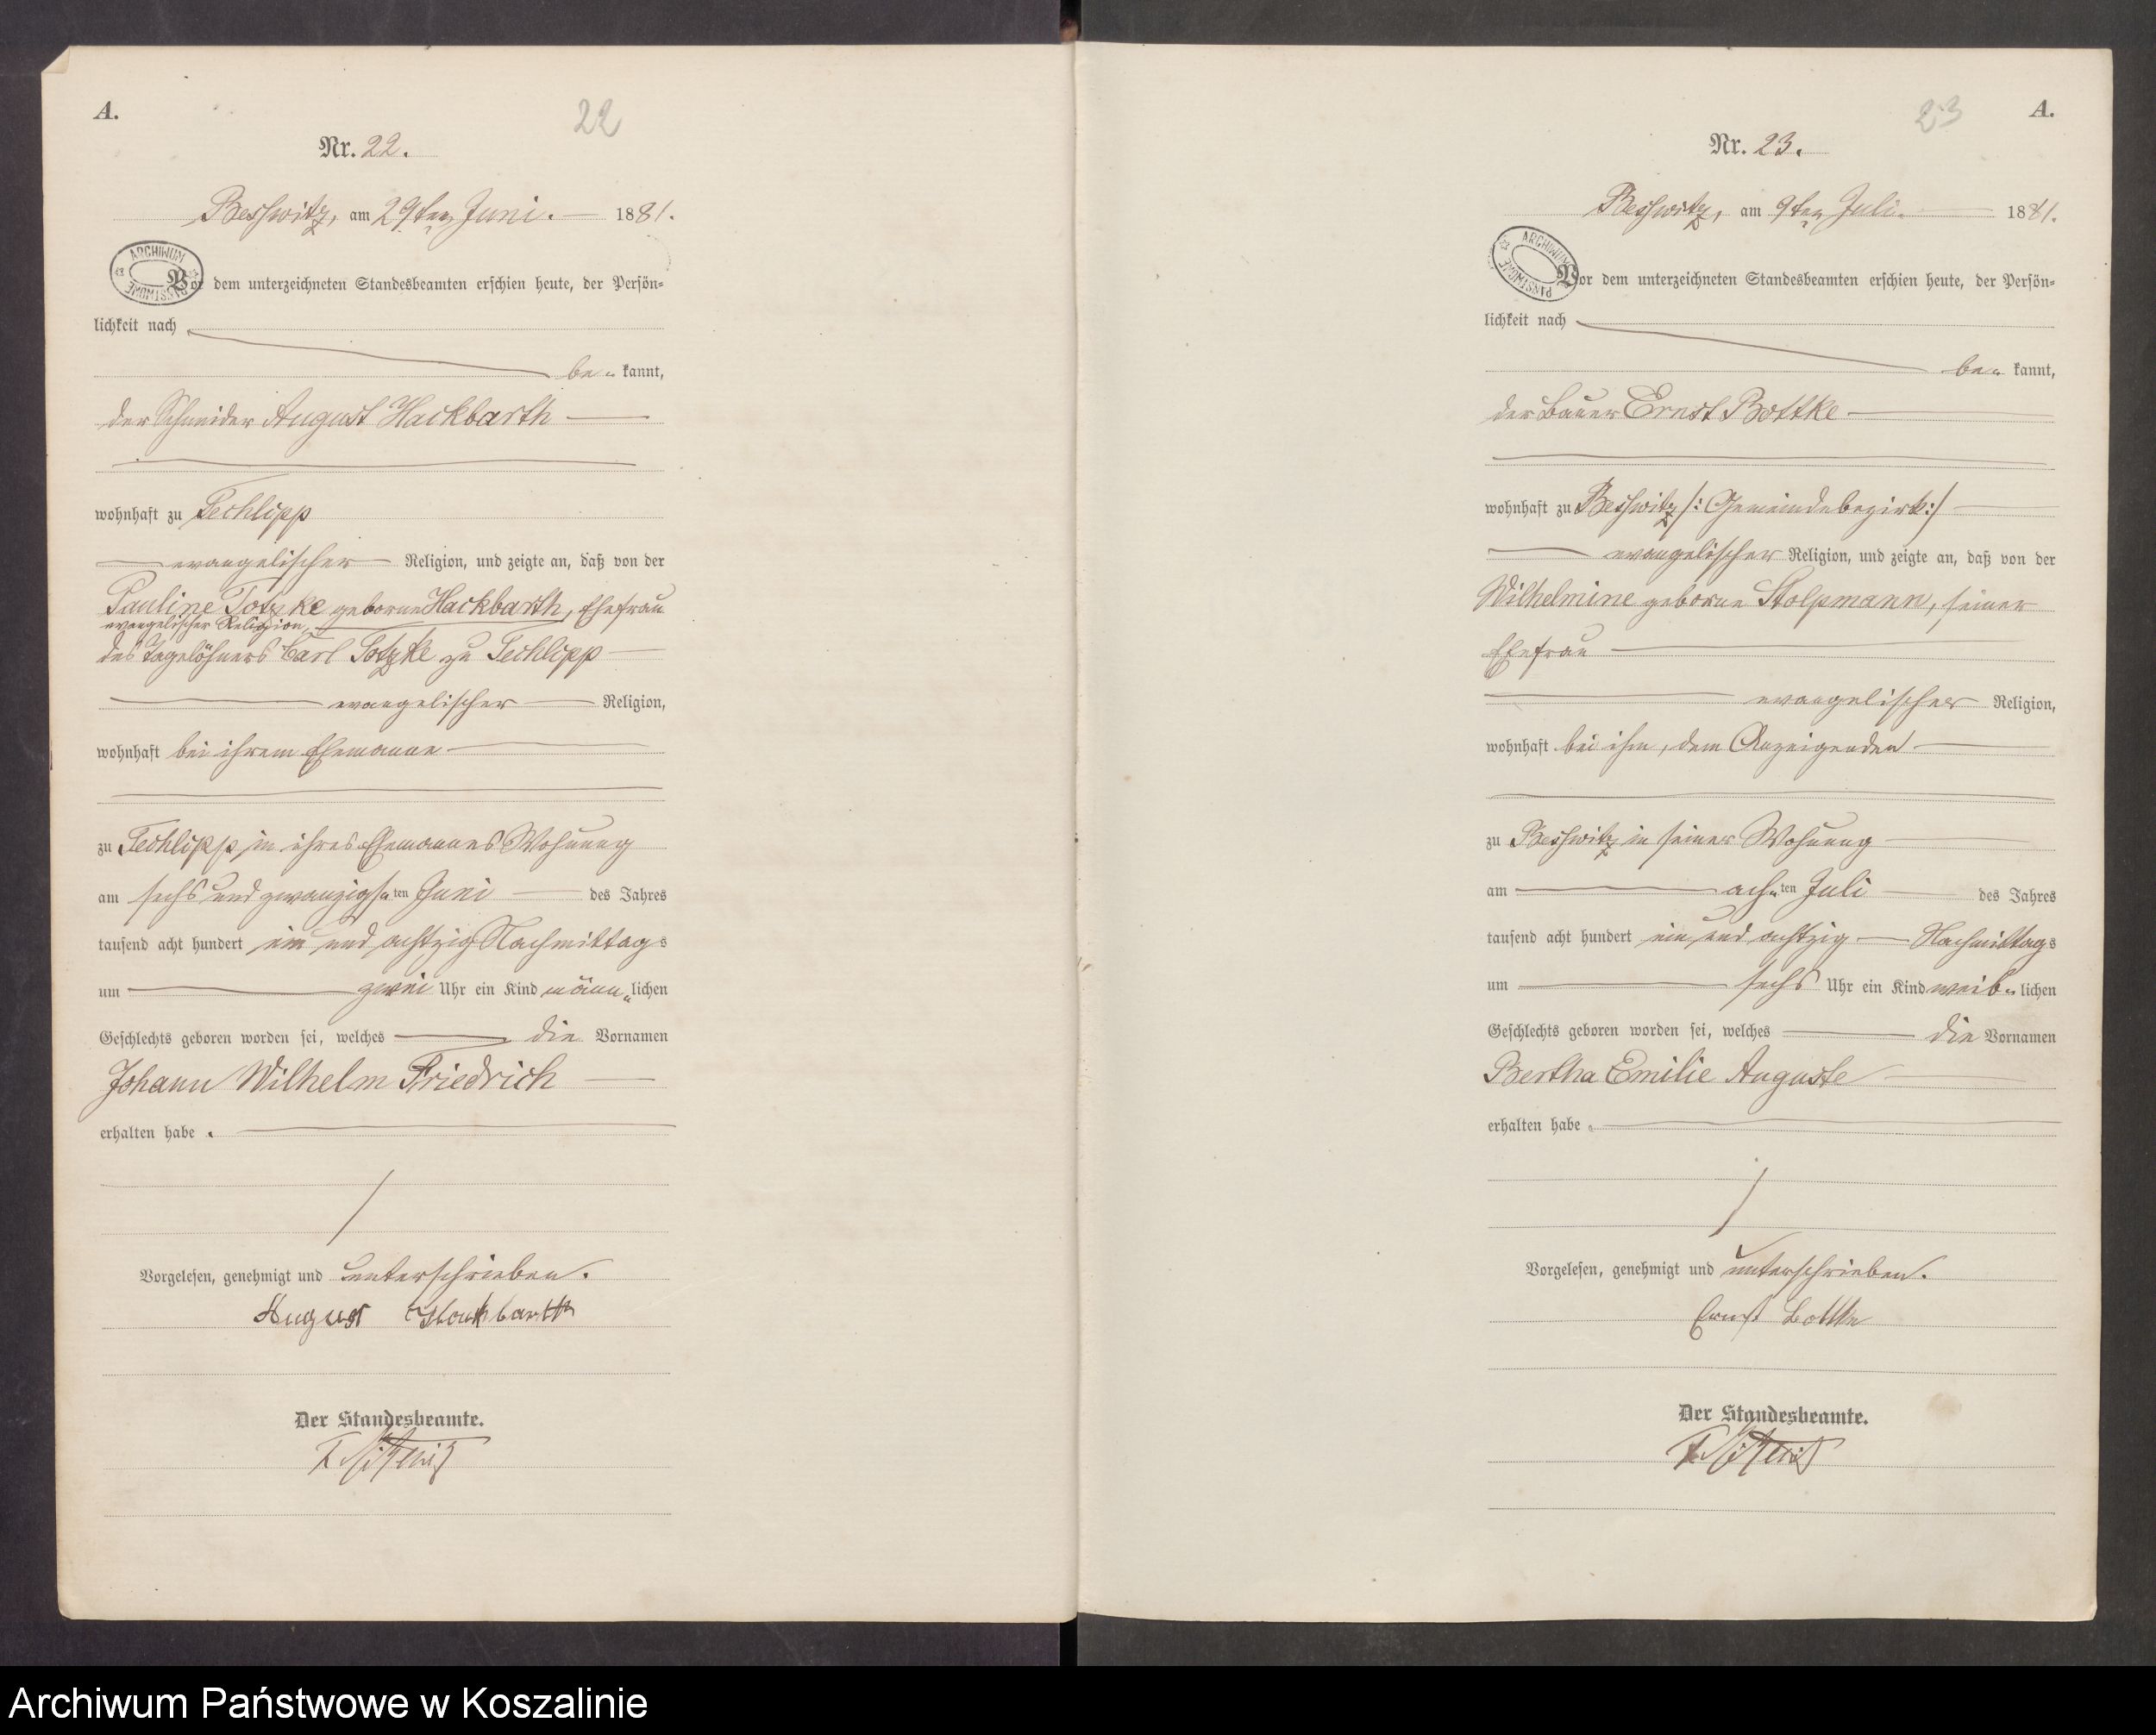 A.
22
Nr. 22.
Beßwitz, am 29ten Juni. 1881.
ARCHIWUM PAŃSTWOWE
Vor dem unterzeichneten Standesbeamten erschien heute, der Persön=
lichkeit nach
be= kannt,
der Schneider August Hackbarth
wohnhaft zu Techlipp
evangelischer Religion, und zeigte an, daß von der
Pauline Totzke geborne Hackbarth, Ehefrau
evangelischer Religion
des Tagelöhners Carl Totzke zu Techlipp
evangelischer Religion,
wohnhaft bei ihrem Ehemanne
zu Techlipp, in ihres Ehemannes Wohnung
am sechs und zwanzigs=ten Juni des Jahres
tausend acht hundert ein und achtzig Nachmittags
um zwei Uhr ein Kind männ=lichen
Geschlechts geboren worden sei, welches die Vornamen
Johann Wilhelm Friedrich
erhalten habe.
Vorgelesen, genehmigt und unterschrieben.
August Hackbarth
Der Standesbeamte.
23
A.
Nr. 23.
Beßwitz, am 9ten Juli. 1881.
ARCHIWUM PAŃSTWOWE
Vor dem unterzeichneten Standesbeamten erschien heute, der Persön=
lichkeit nach
be= kannt,
der Bauer Ernst Bottke
wohnhaft zu Beßwitz /: Gemeindebezirk :/
evangelischer Religion, und zeigte an, daß von der
Wilhelmine geborne Stolpmann, seiner
Ehefrau
evangelischer Religion,
wohnhaft bei ihm, dem Anzeigenden
zu Beßwitz in seiner Wohnung
am ach=ten Juli des Jahres
tausend acht hundert ein und achtzig Nachmittags
um sechs Uhr ein Kind weib=lichen
Geschlechts geboren worden sei, welches die Vornamen
Bertha Emilie Auguste
erhalten habe.
Vorgelesen, genehmigt und unterschrieben.
Ernst Bottke
Der Standesbeamte.
Archiwum Państwowe w Koszalinie